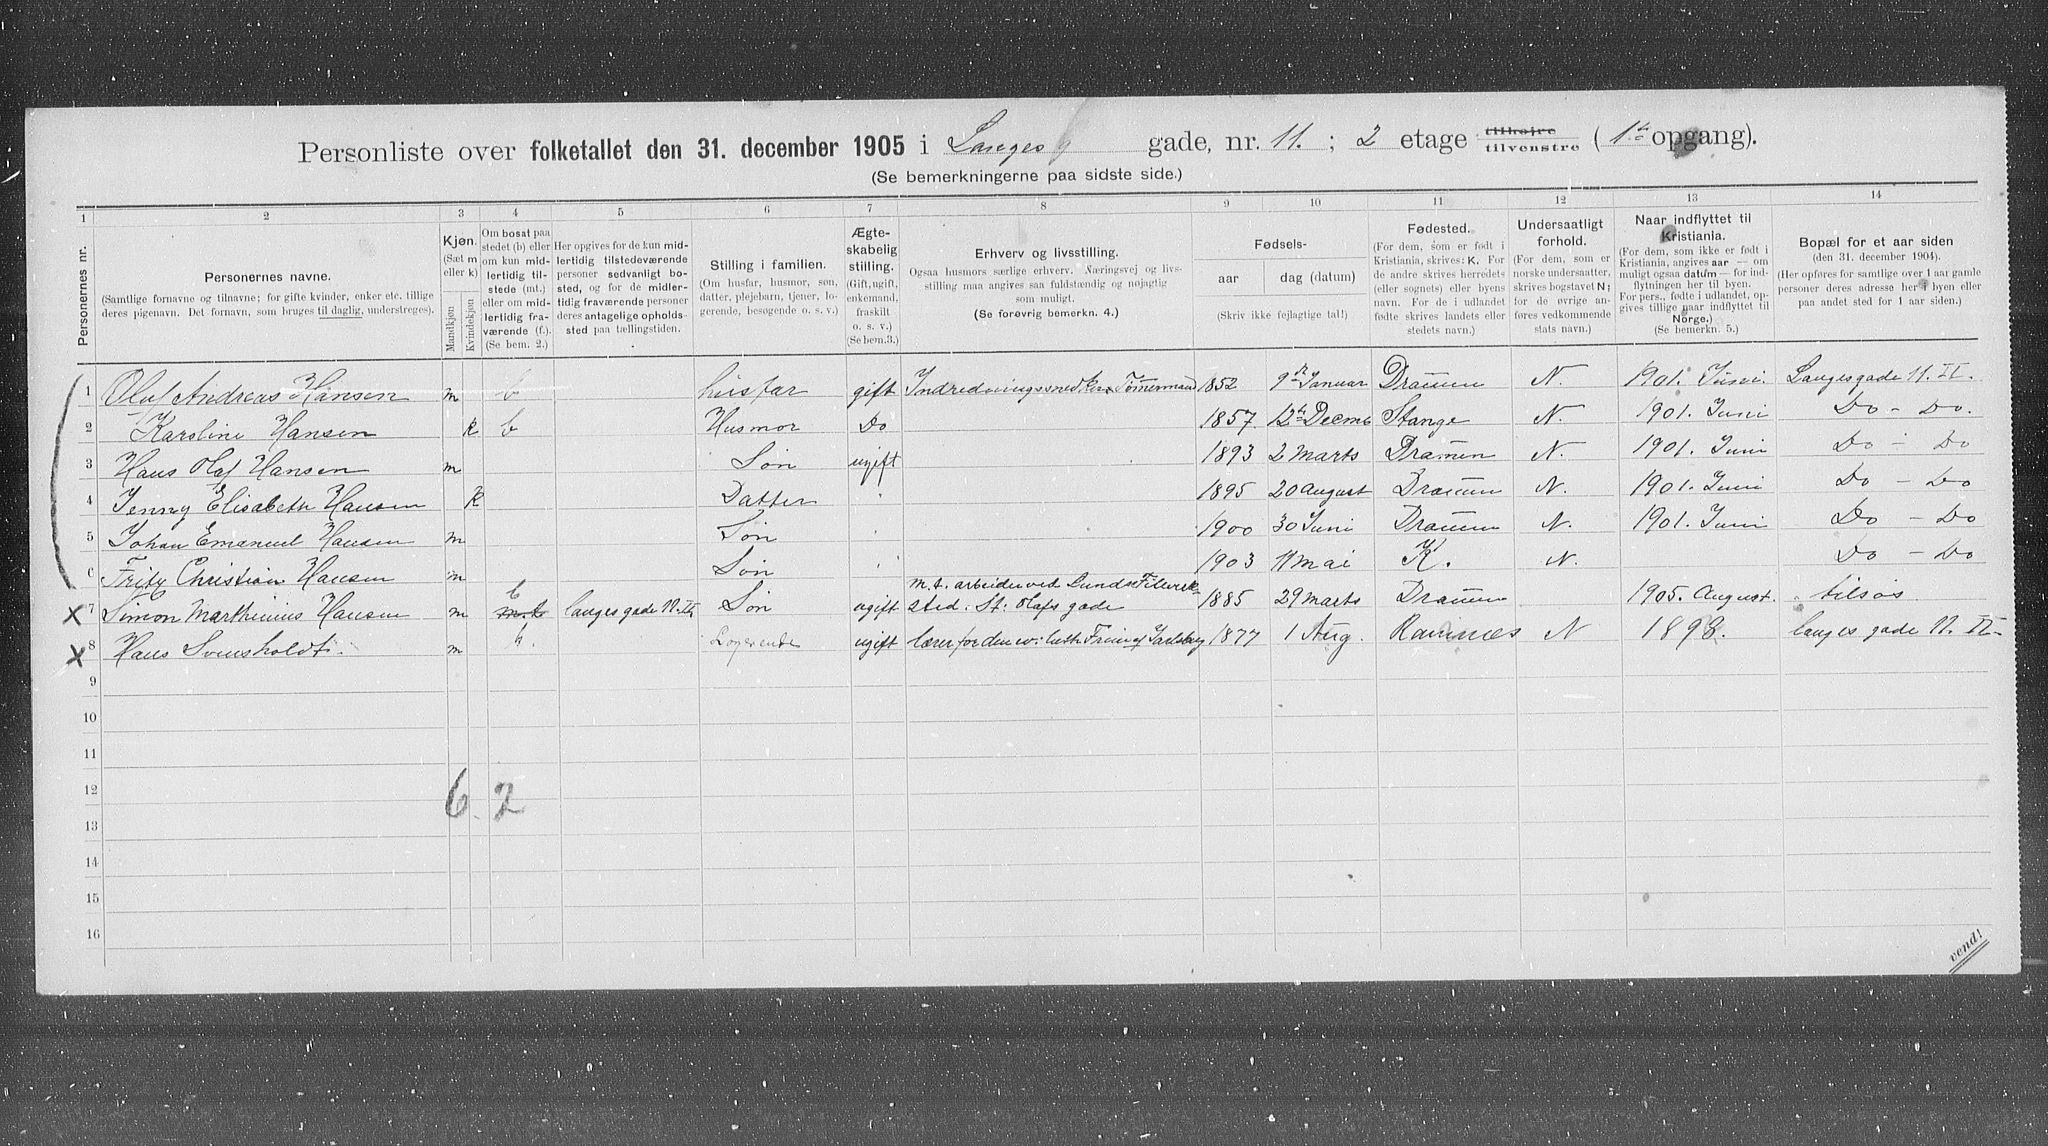 Personliste over folketallet den 31. december 1905 i Langes gade, nr. 11. ; 2 etage tilhøire tilvenstre ( 1ste opgang).
(Se bemerkningerne paa sidste side.)
1 2 3 4 5 6 7 8 9 10 11 12 13 14
Personernes nr.
Personernes navne.
(Samtlige fornavne og tilnavne; for gifte kvinder, enker etc. tillige
deres pigenavn. Det fornavn, som bruges til daglig, understreges).
Kjøn.
(Sæt m
eller k)
Mandkjøn
Kvindekjøn
Om bosat paa
stedet (b) eller
om kun mid-
lertidig til-
stede (mt.)
eller om mid-
lertidig fra-
værende (f.).
(Se bem. 2.)
Her opgives for de kun mid-
lertidig tilstedeværende
personer sedvanlig bo-
sted, og for de midler-
tidig fraværende personer
deres antagelige opholds-
sted paa tællingstiden.
Stilling i familien.
(Om husfar, husmor, søn,
datter, plejebarn, tjener, lo-
gerende, besøgende o. s. v.)
Ægte-
skabelig
stilling.
(Gift, ugift,
enkemand,
fraskilt
o. s. v.)
(Se bem.3.)
Erhverv og livsstilling.
Ogsaa husmors særlige erhverv. Næringsvej og livs-
stilling maa angives saa fuldstændig og nøjagtig
som muligt.
(Se forøvrig bemerkn. 4.)
Fødsels-
aar
dag (datum)
(Skriv ikke fejlagtige tal!)
Fødested.
(For dem, som er født i
Kristiania, skrives: K. For
de andre skrives herredets
(eller sognets) eller byens
navn. For de i udlandet
fødte skrives landets eller
stedets navn.)
Undersaatligt
forhold.
(For dem, som er
norske undersaatter,
skrives bogstavet N;
for de øvrige an-
føres vedkommende
stats navn.)
Naar indflyttet til
Kristiania.
(For dem, som ikke er født i
Kristiania, angives aar — om
muligt ogsaa datum — for ind-
flytningen her til byen.
For pers., fødte i udlandet, op-
gives tillige naar indflyttet til
Norge.)
(Se bemerkn. 5.)
Bopæl for et aar siden
(den 31. december 1904).
(Her opføres for samtlige over 1 aar gamle
personer deres adresse her i byen eller
paa andet sted for 1 aar siden.)
1 Oluf Andreas Hansen m b husfar gift Indredningssnedker Tømermand 1852 9de Januar Dramen N. 1901. Juni Langesgade 11. II.
2 Karoline Hansen k b Husmor Do 1857 12te Decmb Stange N. 1901. Juni Do - Do.
3 Hans Olaf Hansen m Søn ugift 1893 2 Marts Dramen N. 1901. Juni Do - Do
4 Jenny Elisabeth Hansen k Datter 1895 20 August Dramen N. 1901. Juni Do - Do
5 Johan Emanuel Hansen m Søn 1900 30 Juni Dramen N. 1901. Juni Do - Do
6 Fritz Christian Hansen m Søn 1903 11 mai K. N. Do - Do
X 7 Simon Marthinius Hansen m m.t. b langes gade 11. II. Søn ugift m.t. arbeider ved Lunds
sted. St. Olafs gade 1885 29 Marts Dramen 1905. August. tilsøs
X 8 Hans m Logerende ugift lærer for den ev. luth. Frim. af Jarlsberg 1877 1 Aug. Ramnes N 1898. langes gade 11. II
9
10
11
12
6. 2
13
14
15
16
vend!